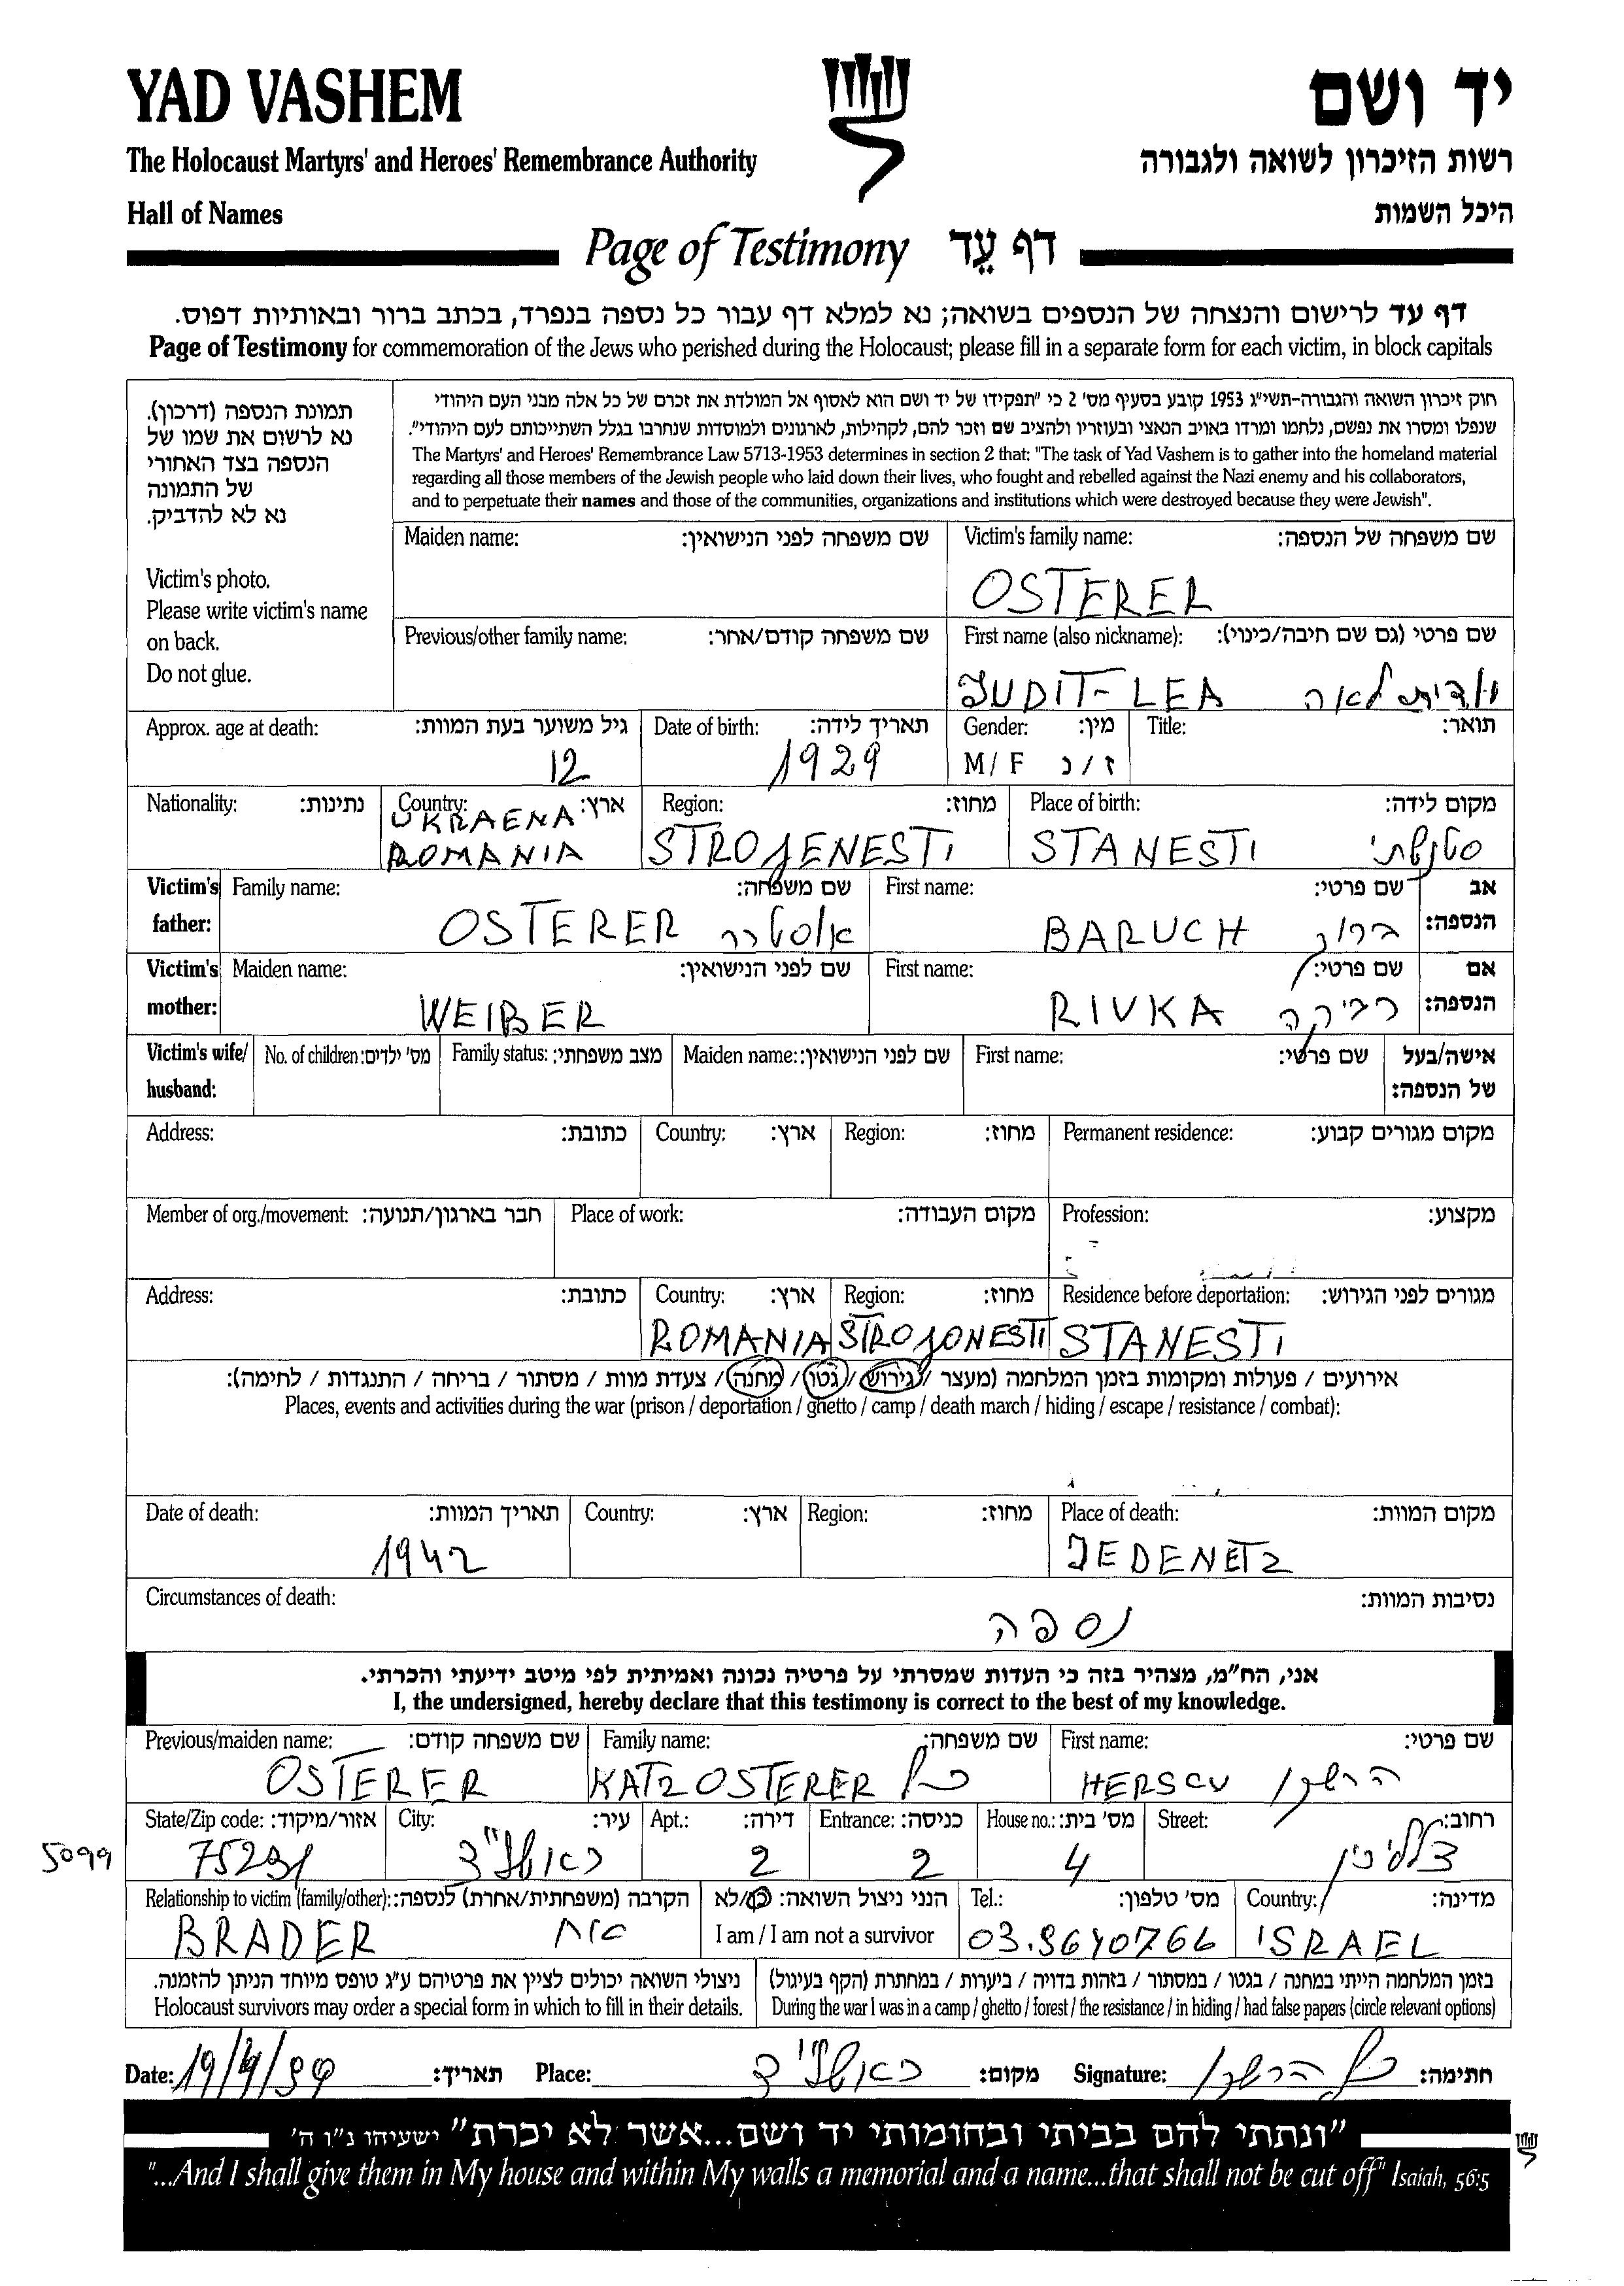 YAD VASHEM
יד ושם
The Holocaust Martyrs' and Heroes' Remembrance Authority
רשות הזיכרון לשואה ולגבורה
Hall of Names
היכל השמות
Page of Testimony דף עֵד
דף עד לרישום והנצחה של הנספים בשואה; נא למלא דף עבור כל נספה בנפרד, בכתב ברור ובאותיות דפוס.
Page of Testimony for commemoration of the Jews who perished during the Holocaust; please fill in a separate form for each victim, in block capitals
תמונת הנספה (דרכון).
נא לרשום את שמו של
הנספה בצד האחורי
של התמונה
נא לא להדביק.
Victim's photo.
Please write victim's name
on back.
Do not glue.
חוק זיכרון השואה והגבורה-תשי"ג 1953 קובע בסעיף מס' 2 כי "תפקידו של יד ושם הוא לאסוף אל המולדת את זכרם של כל אלה מבני העם היהודי
שנפלו ומסרו את נפשם, נלחמו ומרדו באויב הנאצי ובעוזריו ולהציב שם וזכר להם, לקהילות, לארגונים ולמוסדות שנחרבו בגלל השתייכותם לעם היהודי".
The Martyrs' and Heroes' Remembrance Law 5713-1953 determines in section 2 that: "The task of Yad Vashem is to gather into the homeland material
regarding all those members of the Jewish people who laid down their lives, who fought and rebelled against the Nazi enemy and his collaborators,
and to perpetuate their names and those of the communities, organizations and institutions which were destroyed because they were Jewish".
Maiden name: שם משפחה לפני הנישואין:
Victim's family name: שם משפחה של הנספה:
OSTERER
Previous/other family name: שם משפחה קודם/אחר:
First name (also nickname): שם פרטי (גם שם חיבה/כינוי):
JUDIT-LEA יודית לאה
Approx. age at death: גיל משוער בעת המוות:
12
Date of birth: תאריך לידה:
1929
Gender: מין:
M/F ז/נ
Title: תואר:
Nationality: נתינות:
Country: ארץ:
UKRAENA
ROMANIA
Region: מחוז:
STROJENESTI
Place of birth: מקום לידה:
STANESTI סטנשתי
Victim's father: Family name: שם משפחה:
OSTERER אוסטרר
First name: שם פרטי: אב הנספה:
BARUCH ברוך
Victim's mother: Maiden name: שם לפני הנישואין:
WEIBER
First name: שם פרטי: אם הנספה:
RIVKA רביקה
Victim's wife/ husband: No. of children: מס' ילדים: Family status: מצב משפחתי: Maiden name: שם לפני הנישואין: First name: שם פרטי: אישה/בעל של הנספה:
Address: כתובת: Country: ארץ: Region: מחוז: Permanent residence: מקום מגורים קבוע:
Member of org./movement: חבר בארגון/תנועה: Place of work: מקום העבודה: Profession: מקצוע:
Address: כתובת: Country: ארץ: Region: מחוז: Residence before deportation: מגורים לפני הגירוש:
ROMANIA STROJONESTI STANESTI
אירועים / פעולות ומקומות בזמן המלחמה (מעצר / גירוש / גטו / מחנה / צעדת מוות / מסתור / בריחה / התנגדות / לחימה):
Places, events and activities during the war (prison / deportation / ghetto / camp / death march / hiding / escape / resistance / combat):
Date of death: תאריך המוות: Country: ארץ: Region: מחוז: Place of death: מקום המוות:
1942 JEDENETZ
Circumstances of death: נסיבות המוות:
נספה
אני, הח"מ, מצהיר בזה כי העדות שמסרתי על פרטיה נכונה ואמיתית לפי מיטב ידיעתי והכרתי.
I, the undersigned, hereby declare that this testimony is correct to the best of my knowledge.
Previous/maiden name: שם משפחה קודם: Family name: שם משפחה: First name: שם פרטי:
OSTERER KATZ OSTERER כץ HERSCU הרשקו
State/Zip code: אזור/מיקוד: City: עיר: Apt.: דירה: Entrance: כניסה: House no.: מס' בית: Street: רחוב:
5099 75291 ראשל"צ 2 2 4
Relationship to victim (family/other): הקרבה (משפחתית/אחרת) לנספה: הנני ניצול השואה: כן/לא Tel.: מס' טלפון: Country: מדינה:
BRADER אח I am / I am not a survivor 03.9640766 ISRAEL
ניצולי השואה יכולים לציין את פרטיהם ע"ג טופס מיוחד הניתן להזמנה.
Holocaust survivors may order a special form in which to fill in their details.
בזמן המלחמה הייתי במחנה / בגטו / במסתור / בזהות בדויה / ביערות / במחתרת (הקף בעיגול)
During the war I was in a camp / ghetto / forest / the resistance / in hiding / had false papers (circle relevant options)
Date: 19/4/99 תאריך: Place: ראשל"צ מקום: Signature: כץ הרשקו חתימה:
"ונתתי להם בביתי ובחומותי יד ושם...אשר לא יכרת" ישעיהו נ"ו ה'
"...And I shall give them in My house and within My walls a memorial and a name...that shall not be cut off" Isaiah, 56:5